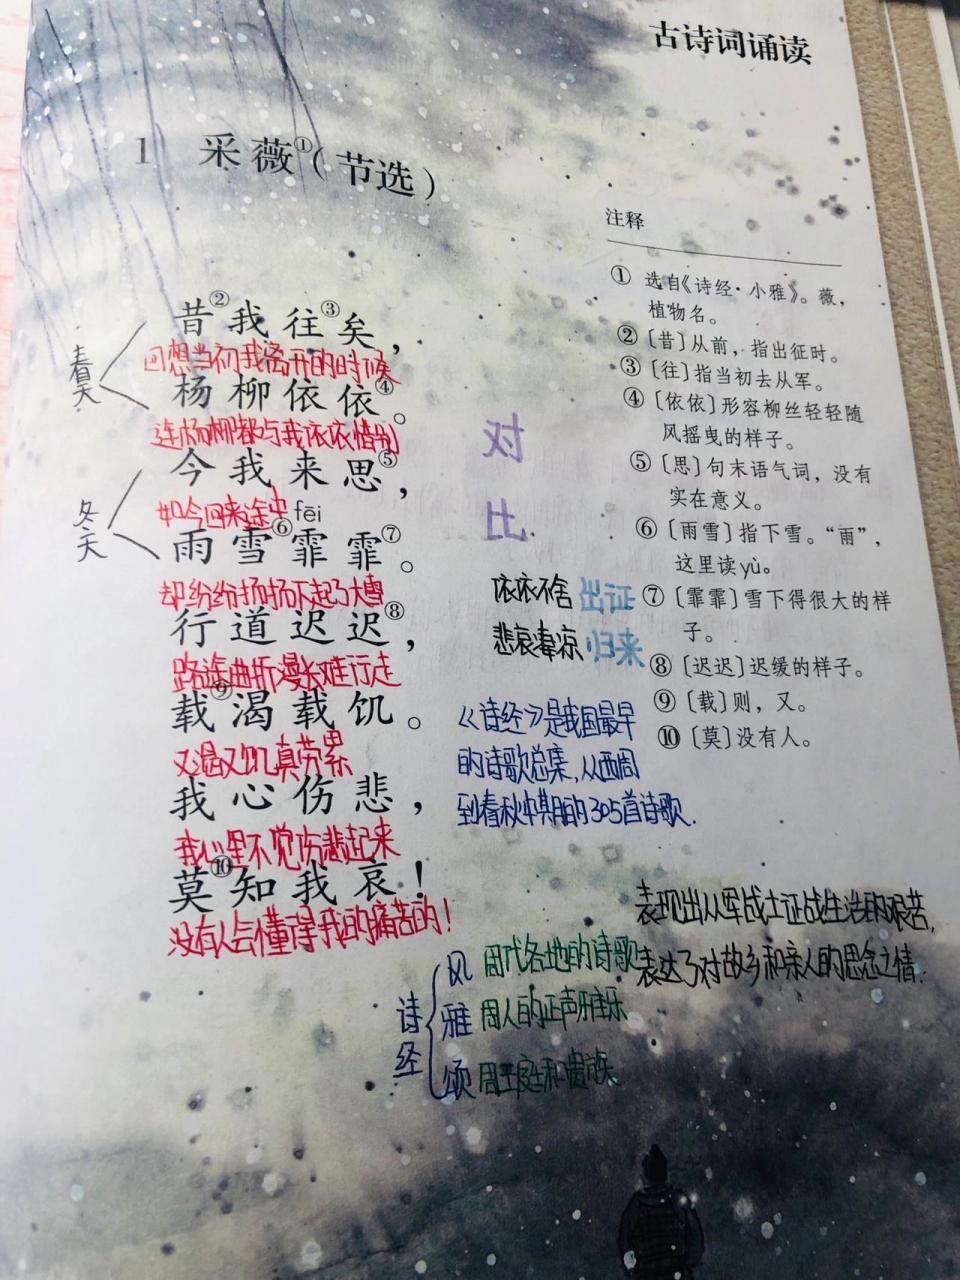 古诗词诵读
1 采薇①（节选）
昔②我往③矣，
回想当初我离开的时候
杨柳依依④。
连杨柳都与我依依惜别
春天
今我来思⑤，
如今回来途中
fēi
雨雪⑥霏霏⑦。
却纷纷扬扬下起了大雪
冬天
行道迟迟⑧，
路途曲折漫长难行走
载⑨渴载饥。
又渴又饥真劳累
我心伤悲，
我心里不觉伤悲起来
莫⑩知我哀！
没有人会懂得我的痛苦的！
对
比
依依不舍 出证
悲哀凄凉 归来
《诗经》是我国最早
的诗歌总集，从西周
到春秋中期的305首诗歌.
注释
① 选自《诗经·小雅》。薇，
植物名。
②〔昔〕从前，指出征时。
③〔往〕指当初去从军。
④〔依依〕形容柳丝轻轻随
风摇曳的样子。
⑤〔思〕句末语气词，没有
实在意义。
⑥〔雨雪〕指下雪。“雨”，
这里读yù。
⑦〔霏霏〕雪下得很大的样
子。
⑧〔迟迟〕迟缓的样子。
⑨〔载〕则，又。
⑩〔莫〕没有人。
表现出从军战士证战生活的艰苦，
表达了对故乡和亲人的思念之情.
诗经
风 周代各地的诗歌
雅 周人的正声雅乐
颂 周王庭和贵族